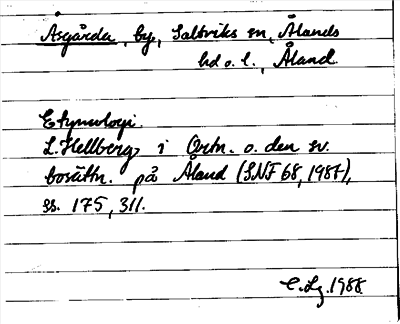 Åsgårda, by, Saltviks sn, Ålands
hd o. l., Åland.
Etymologi.
L. Hellberg i Ortn. o. den sv.
bosättn. på Åland (SNF 68, 1987),
ss. 175, 311.
C. Lg. 1988